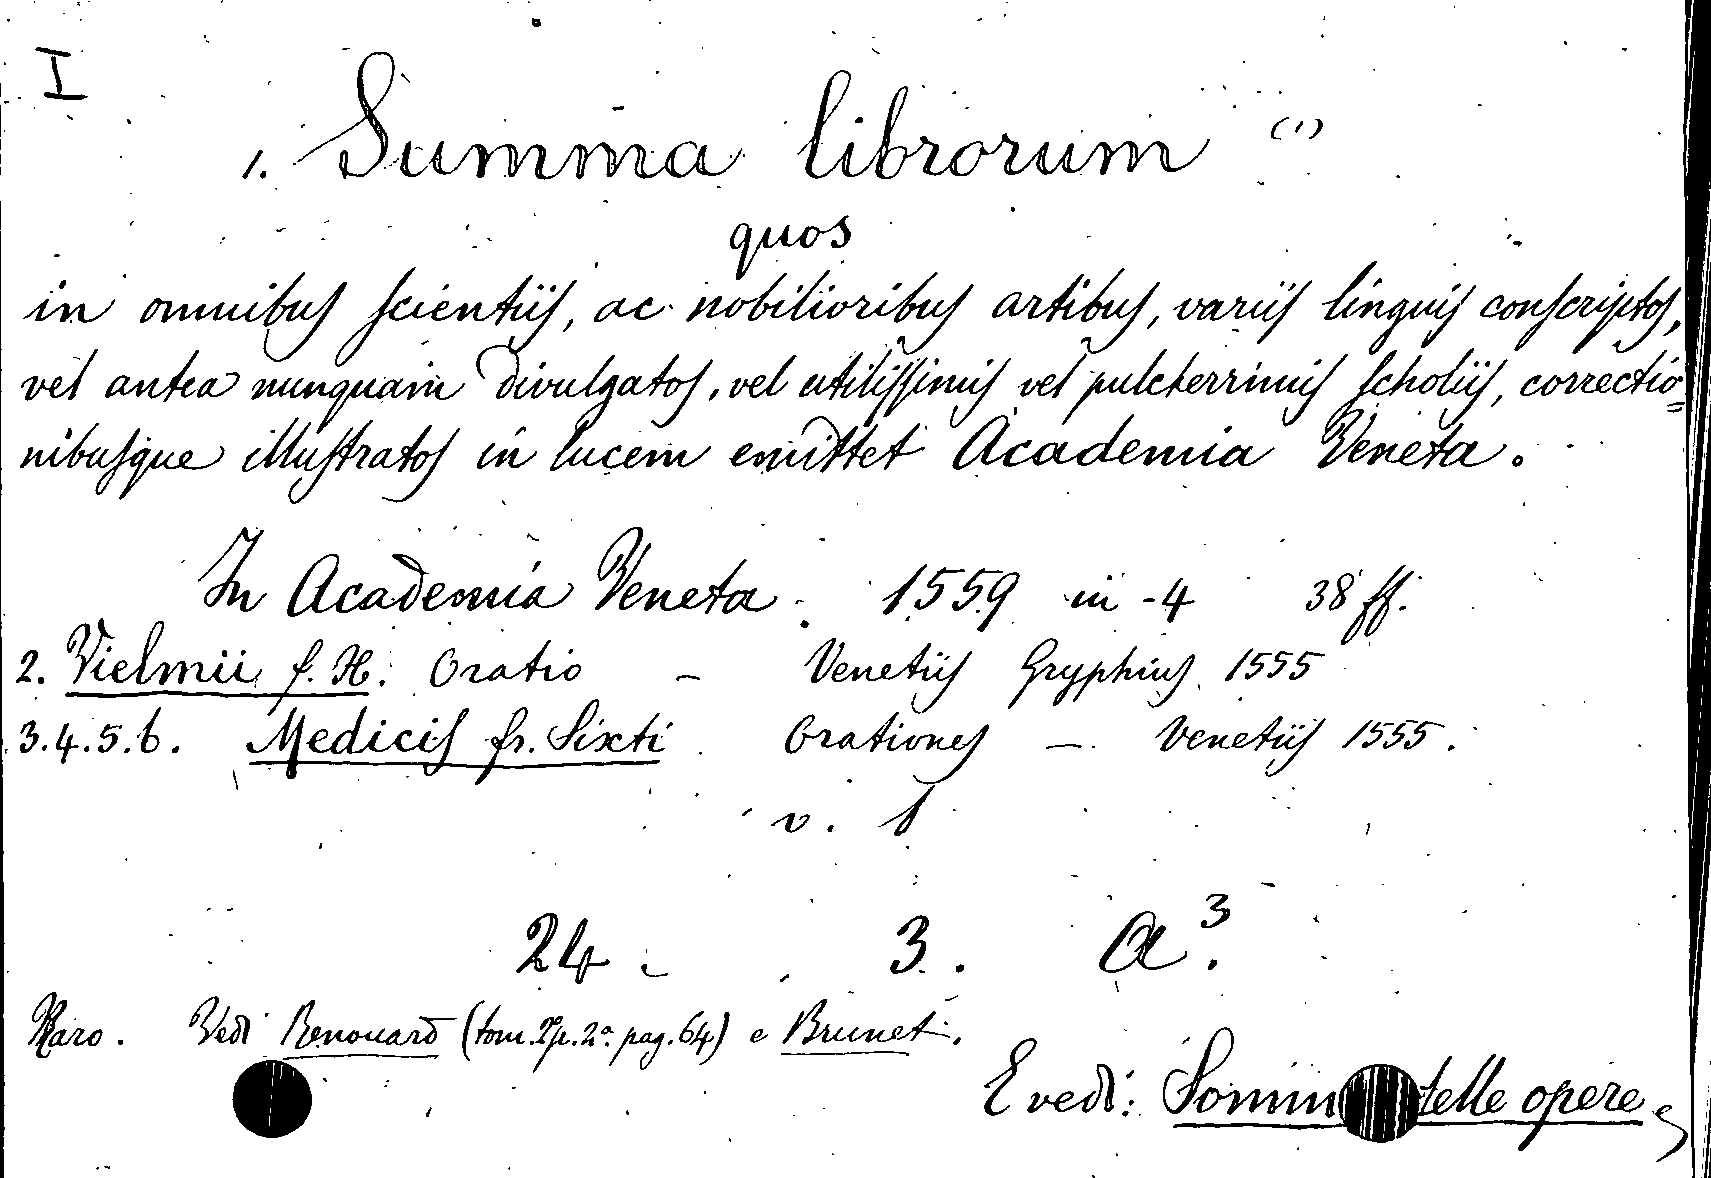 I
1. Summa librorum (1)
quos
in omnibus scientiis, ac nobilioribus artibus, variis linguis conscriptos,
vel antea nunquam divulgatos, vel utilissimis vel pulcherrimis scholiis, correctio=
nibusque illustratos in lucem emittet Academia Veneta.
In Academia Veneta. 1559 in-4 38 ff.
2. Vielmii f. H. Oratio – Venetiis Gryphius 1555
3.4.5.6. Medicis fr. Sixti Orationes – Venetiis 1555.
v. 1
24. 3. a³.
Raro. Vedi Renouard (tom. 2a. pag. 64) e Brunet.
E vedi: Somm delle opere